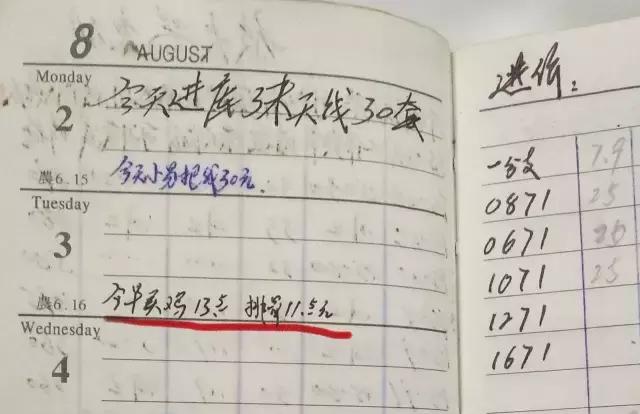 8 AUGUST
Monday
2
今天进库3米天线30套
農6.15
今天小 30元.
Tuesday
3
農6.16
今早买鸡 排骨
Wednesday
4
进价:
一分支 7.9
0871 25
0671
1071 25
1271
1671